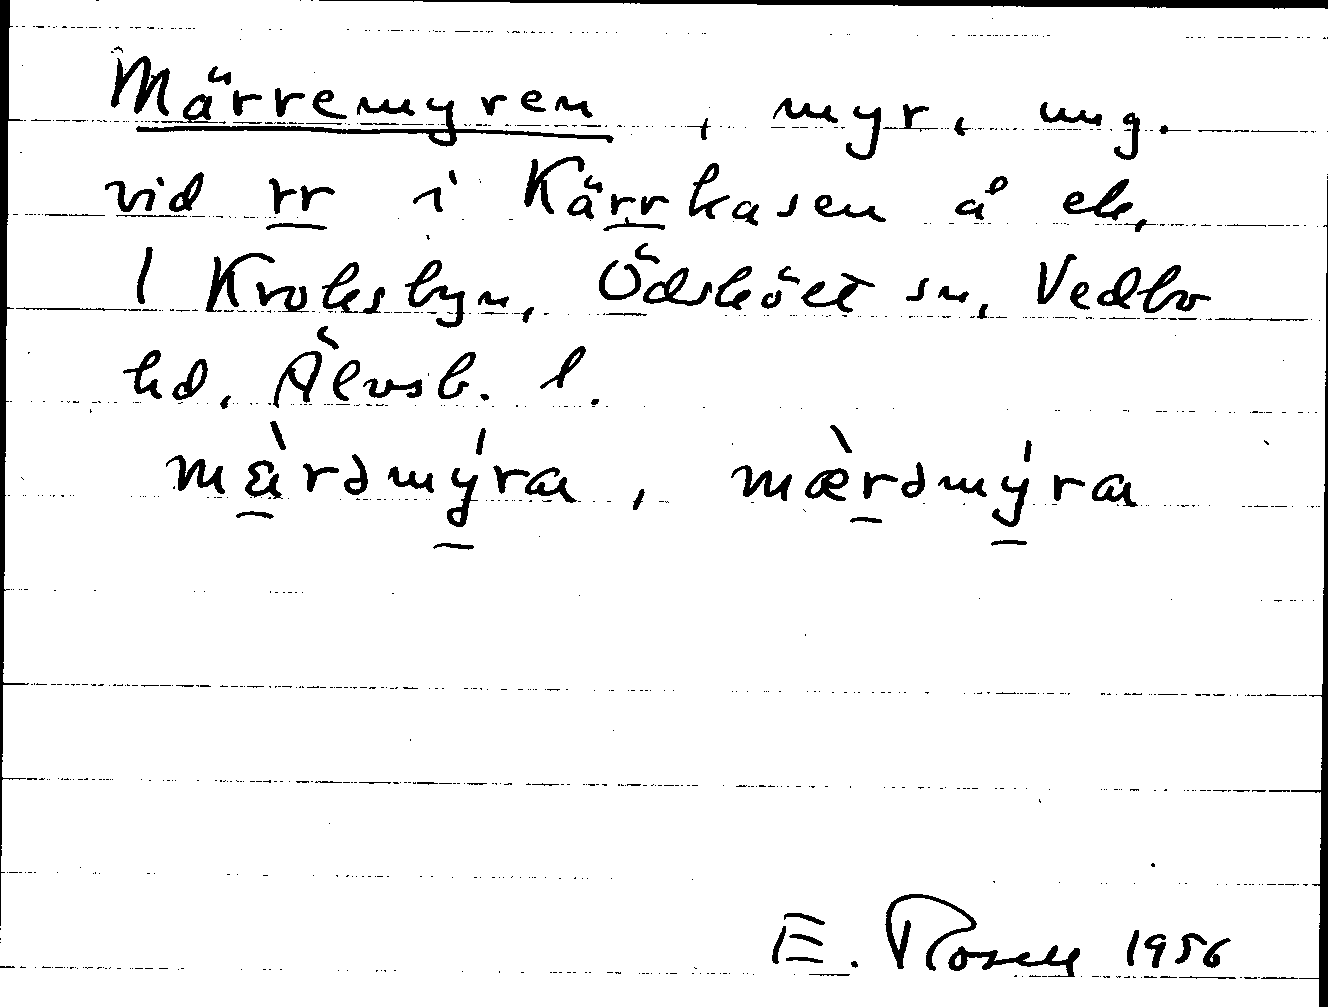 Märremyren, myr, ung.
vid rr i Kärrkasen å ek.
1 Kroksbyn, Ödskölt sn, Vedbo
hd, Älvsb. l.
mà̱rəmý̱ra, mæ̀ṟəmý̱ra
E. Rosell 1956